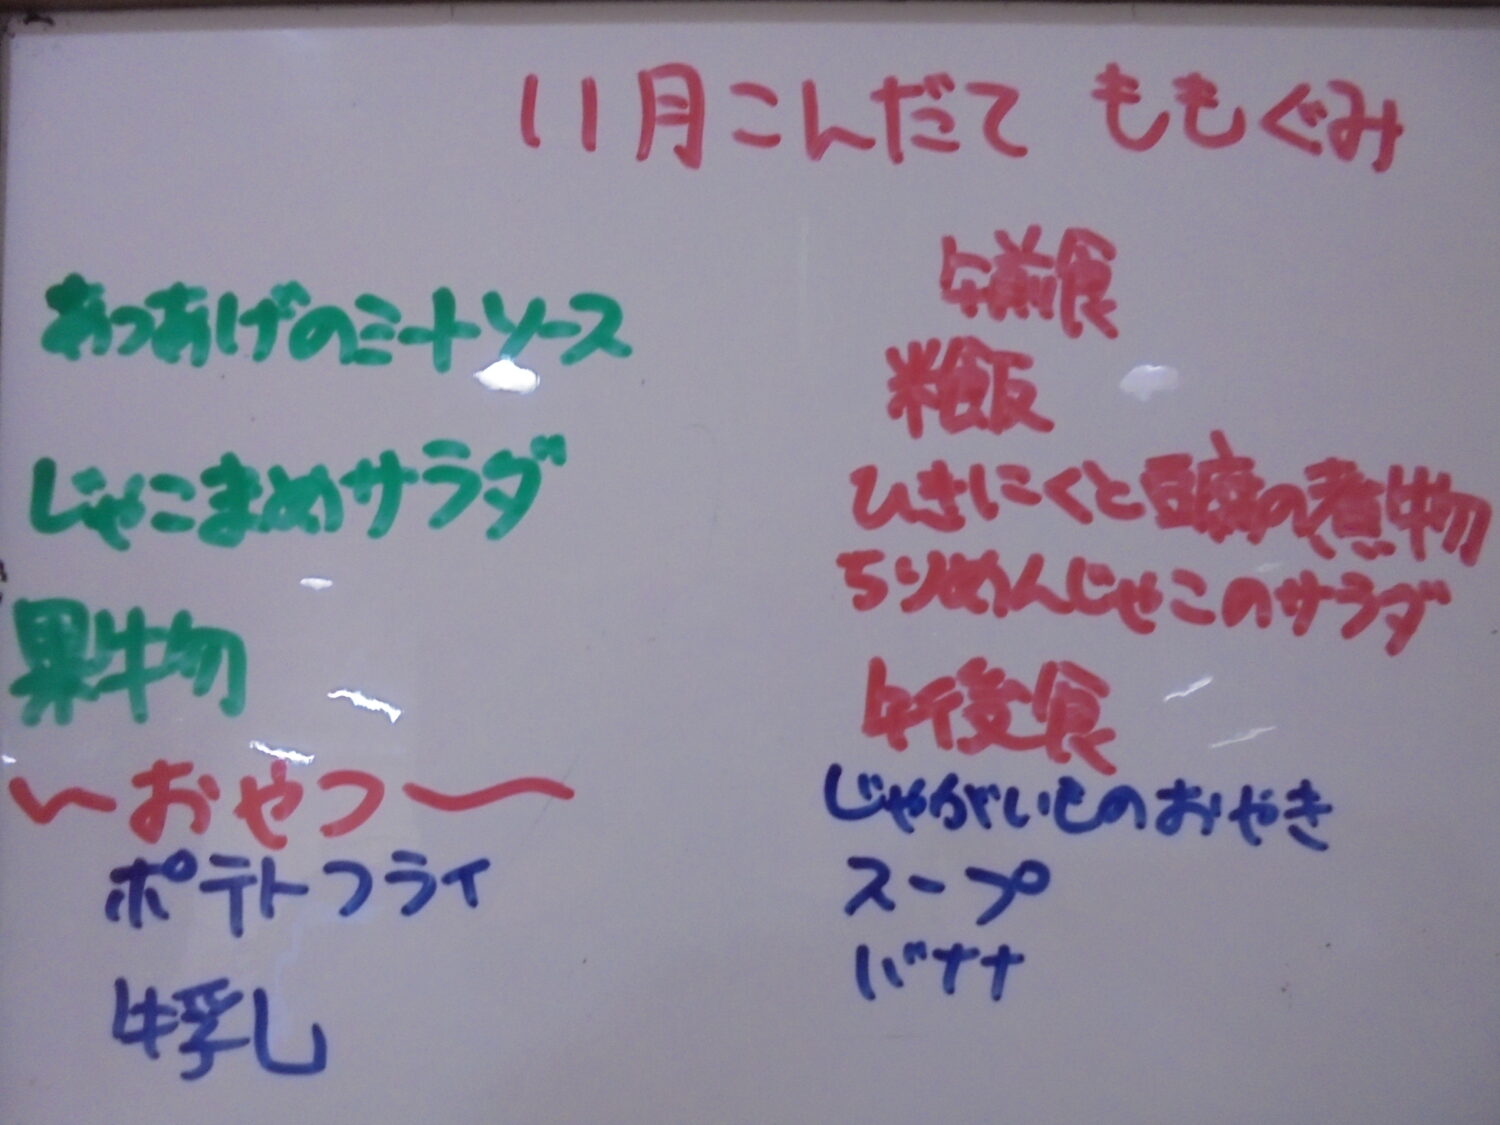 11月こんだて ももぐみ
あつあげのミートソース
じゃこまめサラダ
果物
〜おやつ〜
ポテトフライ
牛乳
午前食
米飯
ひきにくと豆腐の煮物
ちりめんじゃこのサラダ
午後食
じゃがいものおやき
スープ
バナナ